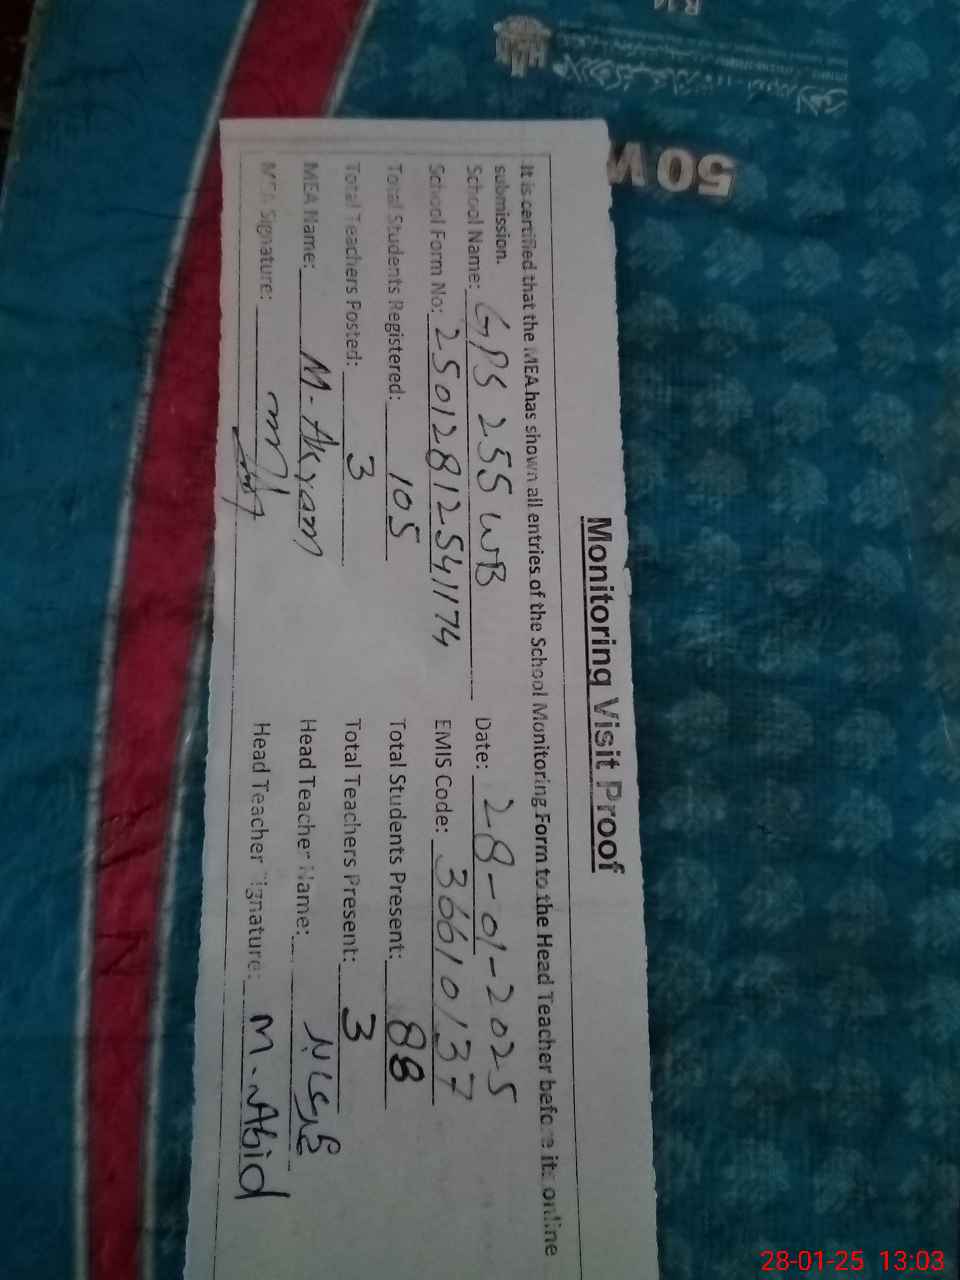 Monitoring Visit Proof
It is certified that the MEA has shown all entries of the School Monitoring Form to the Head Teacher before its online
submission.
School Name: GPS 255 WB Date: 28-01-2025
School Form No: 25012812541174 EMIS Code: 36610137
Total Students Registered: 105 Total Students Present: 88
Total Teachers Posted: 3 Total Teachers Present: 3
MEA Name: M-Akram Head Teacher Name:
MEA Signature: Head Teacher Signature: M-Abid
50
28-01-25 13:03